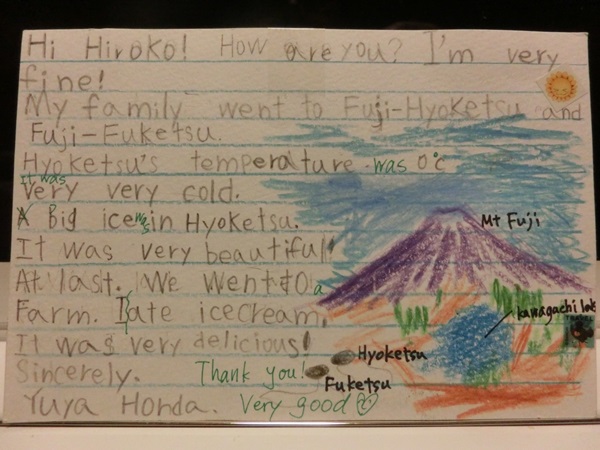 Hi Hiroko! How are you? I'm very
fine!
My family went to Fuji-Hyoketsu and
Fuji-Fuketsu.
Hyoketsu's temperature was 0°c
It was
Very very cold.
A Big ice was in Hyoketsu.
It was very beautiful!
At last. We went to a
Farm. I ate icecream.
It was very delicious!
Sincerely. Thank you!
Yuya Honda. Very good
Mt Fuji
kawagachi lak
Hyoketsu
Fuketsu